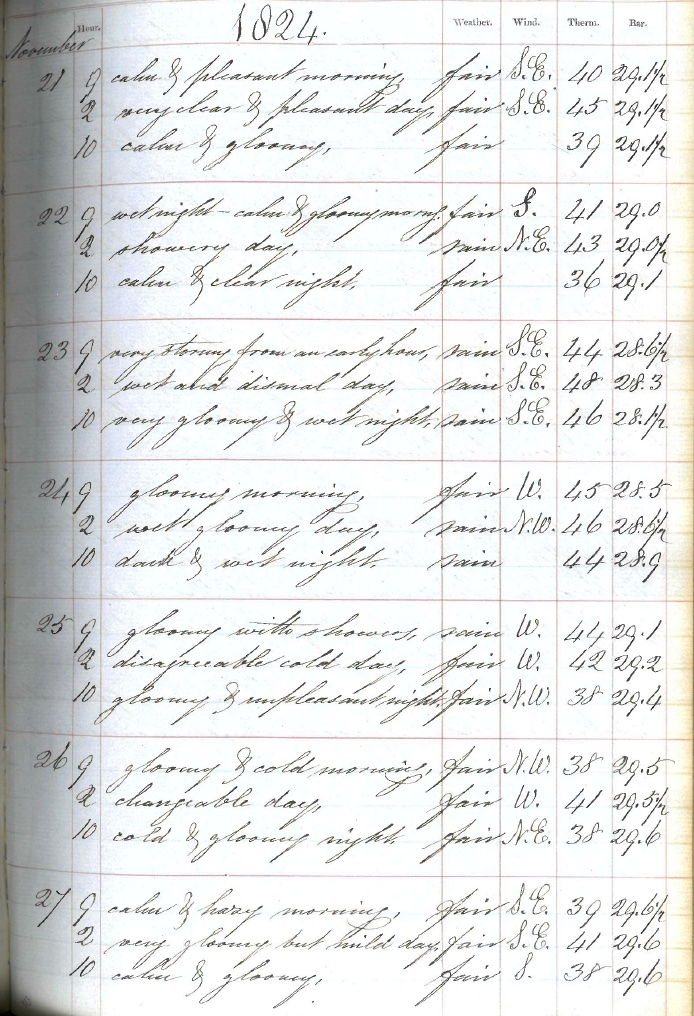 1824.
Hour. Weather. Wind. Therm. Bar.
November
21 9 calm & pleasant morning, fair S.E. 40 29.1½
2 very clear & pleasant day, fair S.E. 45 29.1½
10 calm & gloomy, fair 39 29.1½
22 9 wet night - calm & gloomy morng. fair S. 41 29.0
2 showery day, rain N.E. 43 29.0½
10 calm & clear night, fair 36 29.1
23 9 very stormy from an early hour, rain S.E. 44 28.6½
2 wet and dismal day, rain S.E. 48 28.3
10 very gloomy & wet night, rain S.E. 46 28.1½
24 9 gloomy morning, fair W. 45 28.5
2 wet gloomy day, rain N.W. 46 28.6½
10 dark & wet night. rain 44 28.9
25 9 gloomy with showers, rain W. 44 29.1
2 disagreeable cold day, fair W. 42 29.2
10 gloomy & unpleasant night. fair N.W. 38 29.4
26 9 gloomy & cold morning, fair N.W. 38 29.5
2 changeable day, fair W. 41 29.5½
10 cold & gloomy night. fair N.E. 38 29.6
27 9 calm & hazy morning, fair S.E. 39 29.6½
2 very gloomy but mild day, fair S.E. 41 29.6
10 calm & gloomy, fair S. 38 29.6